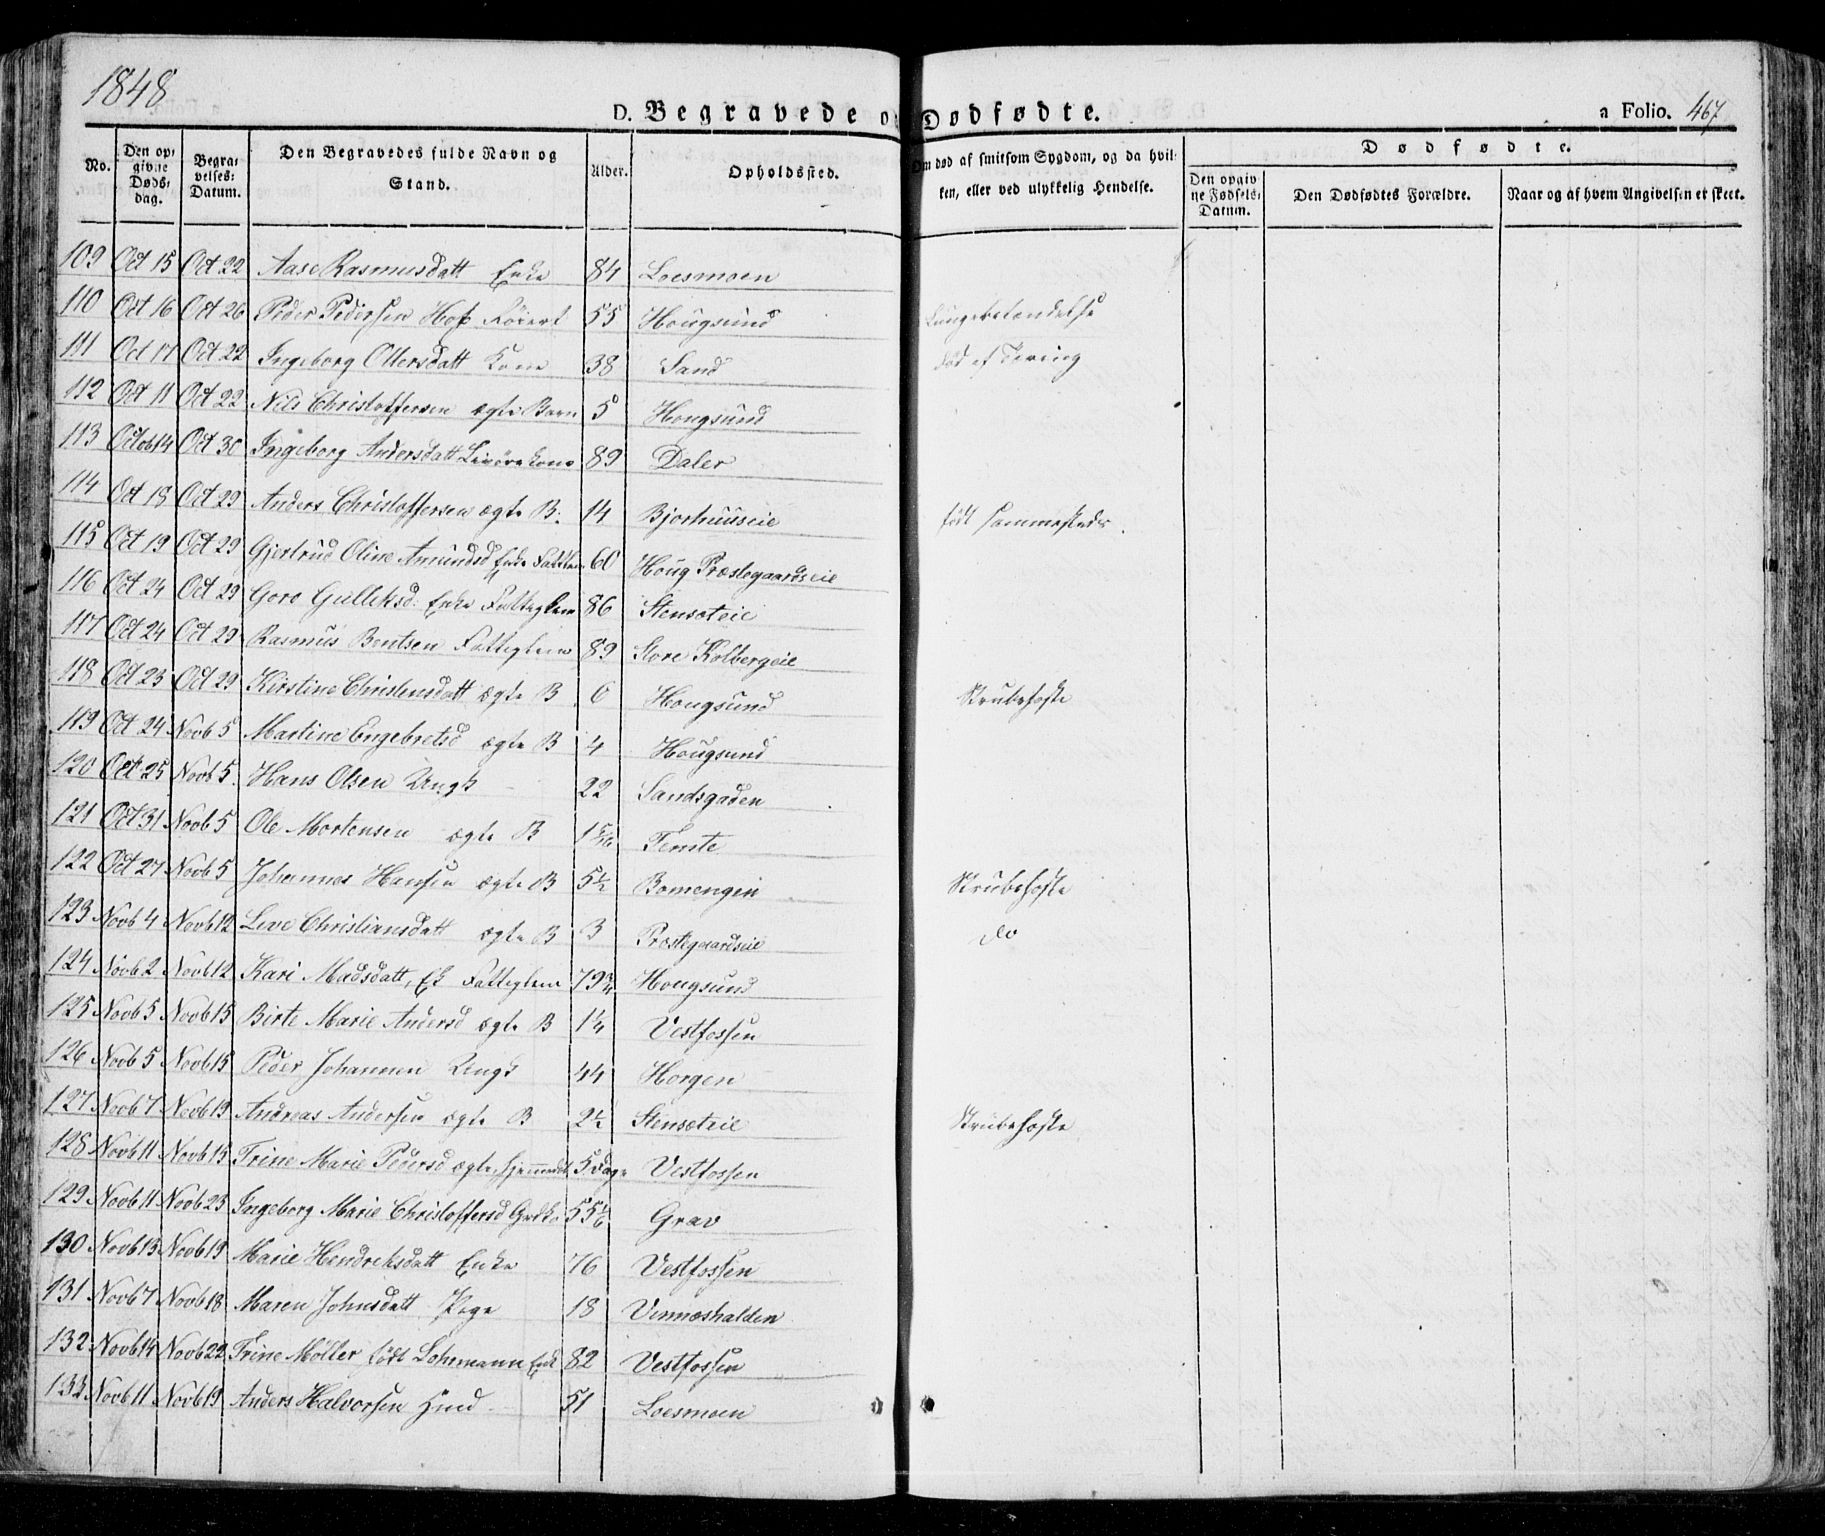 1848
D. Begravede og Dødfødte.
a Folio. 467
No.
Den opgivne Dødsdag.
Begravelses-Datum.
Den Begravedes fulde Navn og Stand.
Alder.
Opholdssted.
Om død af smitsom Sygdom, og da hvilken, eller ved ulykkelig Hendelse.
Dødfødte.
Den opgivne Fødsels-Datum.
Den Dødfødtes Forældre.
Naar og af hvem Angivelsen er skeet.
109 Oct 15 Oct 22 Aase Rasmusdatt Enke 84 Loesmoen
110 Oct 16 Oct 26 Peder Pedersen Hof 55 Hougsund Lungebetændelse
111 Oct 17 Oct 22 Ingeborg Ollersdatt Kone 38 Sand død af Tæring
112 Oct 11 Oct 22 Nils Christoffersen ægte Barn 5 Hougsund
113 Octob 14 Oct 30 Ingeborg Andersdatt 89 Daler
114 Oct 18 Oct 29 Anders Christoffersen ægte B. 14 Bjorhuuseie født sammesteds
115 Oct 19 Oct 29 Gjertrud Oline Amundsd Enke Fattlem 60 Houg Præstegaardseie
116 Oct 24 Oct 29 Goro Gulliksd: Enke Fattiglem 86 Stensæteie
117 Oct 24 Oct 29 Rasmus Bentsen Fattiglem 89 Store Kolbergeie
118 Oct 23 Oct 29 Kirstine Christensdatt ægte B 6 Hougsund Strubehoste
119 Oct 24 Novb 5 Martine Engebretsd ægte B 4 Hougsund
120 Oct 25 Novb 5 Hans Olsen Ungk 22 Sandsgaden
121 Oct 31 Novb 5 Ole Mortensen ægte B 1 Temte
122 Oct 27 Novb 5 Johannes Hansen ægte B 5½ Bomengen Strubehoste
123 Novb 4 Novb 12 Live Christiansdatt ægte B 3 Præstegaardseie do
124 Novb 2 Novb 12 Kari Madsdatt, Ek Fattiglem 79¾ Hougsund
125 Novb 5 Novb 15 Birte Marie Andersd ægte B 1¼ Vestfossen
126 Novb 5 Novb 15 Peder Johannen Ungk 44 Horgen
127 Novb 7 Novb 19 Andreas Andersen ægte B 2½ Stensæteie Strubehoste
128 Novb 11 Novb 15 Trine Marie Pedersd ægte hjemmedøbt 5 Dage Vestfossen
129 Novb 11 Novb 23 Ingeborg Marie Christoffersd Grdk 55 Grav
130 Novb 13 Novb 19 Marie Hendriksdatt Enke 76 Vestfossen
131 Novb 7 Novb 18 Maren Johnsdatt Pige 18 Vinneshalden
132 Novb 14 Novb 22 Trine Møller født Lohrmann Enk 82 Vestfossen
133 Novb 11 Novb 19 Anders Halvorsen Hmd 51 Loesmoen